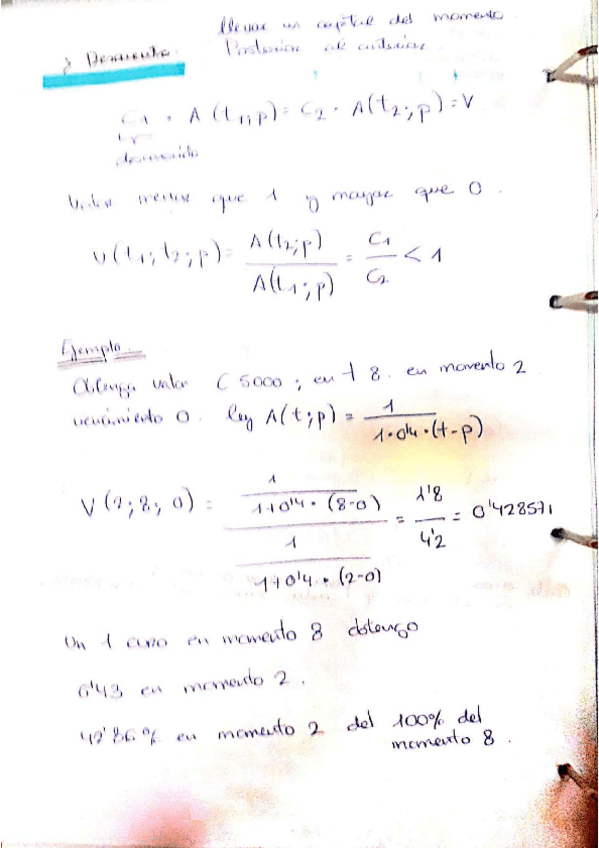 llevar un capital del momento
Posterior al anterior.
Descuento.
C1 . A(t1;p) = C2 . A(t2;p) = V
descontado
Valor menor que 1 y mayor que 0.
v(t1; t2; p) = A(t2;p) / A(t1;p) = C1 / C2 < 1
Ejemplo.
Obtenga valor C 5000; en t 8. en momento 2
vencimiento 0. ley A(t;p) = 1 / 1+0'4·(t-p)
V(2; 8; 0) = 1 / 1+0'4·(8-0) / 1 / 1+0'4·(2-0) = 1'8 / 4'2 = 0'428571
Un 1 euro en momento 8 obtengo
0'43 en momento 2.
42'86% en momento 2 del 100% del
momento 8.